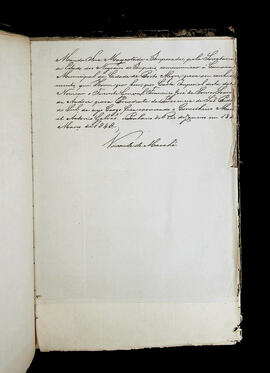 Manda Sua Magestade o Imperador pela Secretaria
de Estado dos Negocios do Imperio communicar á Camara
Municipal da Cidade de Porto Alegre, para seu conheci-
mento que Houve por bem por Carta Imperial desta data
Nomear o Tenente General Francisco José de Souza Soares
de Andréa para Presidente da Provincia de São Pedro
do Sul, de cujo Cargo foi exonerado o Conselheiro Mano-
el Antonio Galvão. Palacio do Rio de Janeiro em
Março de 1848.
Visconde de Macahé